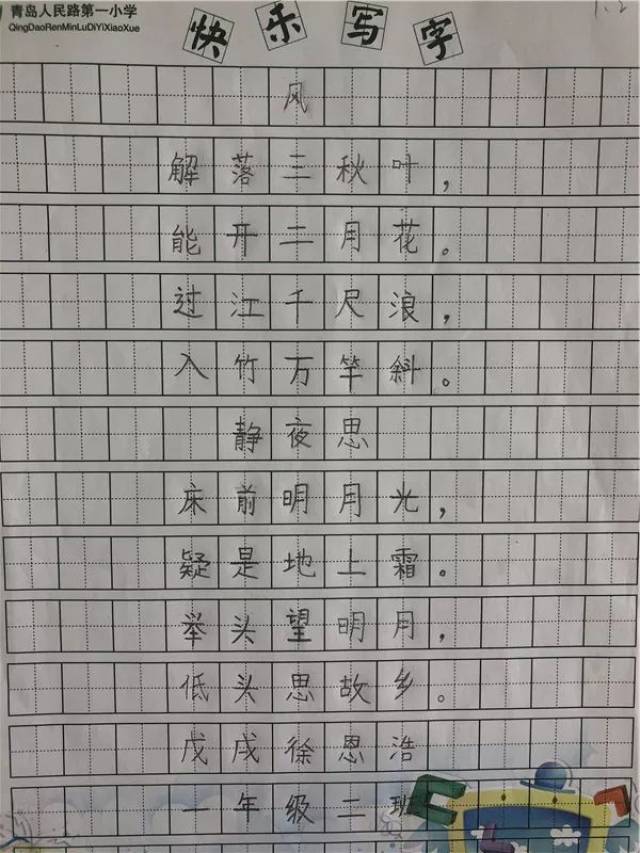 青岛人民路第一小学
QingDaoRenMinLuDiYiXiaoXue
快乐写字
风
解落三秋叶，
能开二月花。
过江千尺浪，
入竹万竿斜。
静夜思
床前明月光，
疑是地上霜。
举头望明月，
低头思故乡。
戊戌徐恩浩
一年级二班